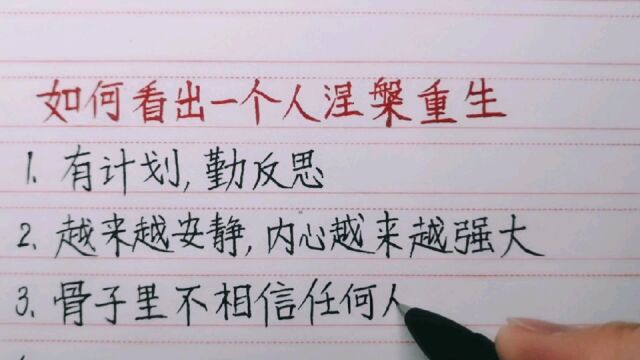 如何看出一个人涅槃重生
1. 有计划,勤反思
2. 越来越安静,内心越来越强大
3. 骨子里不相信任何人